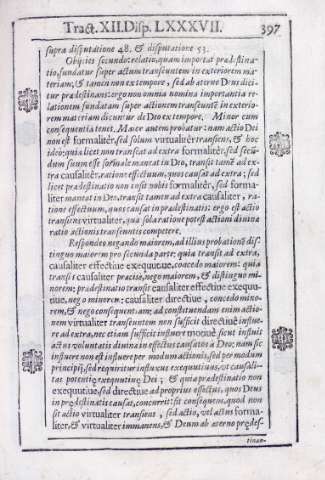 Tract. XII. Disp. LXXXVII. 397
supra disputatione 48. & disputatione 53.
Obijcies secundo: relatio, quam importat prædestina-
tio, fundatur super actum transeuntem in exteriorem ma-
teriam, & tamen non ex tempore, sed ab æterno Deus dici-
tur prædestinans: ergo non omnia nomina importantia re-
lationem fundatam super actionem transeuntē in exterio-
rem materiam dicuntur de Deo ex tempore. Minor cum
consequentia tenet. Maior autem probatur: nam actio Dei
non est formalitèr, sed solùm virtualitèr transiens, & hoc
ideò; quia licet non transeat ad extra formalitèr, sed secū-
dum suum esse formale maneat in Deo, transit tamē ad ex-
tra causalitèr, ratione effectuum, quos causat ad extra; sed
licet prædestinatio non insit nobis formalitèr, sed forma-
liter maneat in Deo, transit tamen ad extra causalitèr, ra-
tione effectuum, quos causat in prædestinatis: ergo est actio
transiens virtualiter, qua sola ratione potest actioni divina
ratio actionis transeuntis competere.
Respondeo negando maiorem, ad illius probationē dis-
tinguo maiorem pro secunda parte: quia transit ad extra,
causaliter effectiuè exequutiuè, concedo maiorem: quia
transit causaliter præcisè, nego maiorem, & distinguo mi-
norem: prædestinatio transit causaliter effectiuè exequu-
tiuè, nego minorem: causaliter directiuè, concedo mino-
rem, & nego consequentiam: ad constituendam enim actio-
nem virtualiter transeuntem non sufficit directiuè influe-
re ad extra, nec etiam sufficit influere motiuè, sicut influit
actus voluntatis divina in effectus causatos à Deo: nam sic
influere non est influere per modum actionis, sed per modum
principij, sed requiritur influxus exequutiuus, vt causali-
tas potentiæ exequutiuæ Dei; & quia prædestinatio non
exequutiuè, sed directiuè ad proprios effectus, quos Deus
in prædestinatis causat, concurrit: fit consequens, quod non
sit actio virtualiter transiens, sed actio, vel actus forma-
liter, & virtualiter immanens, & Deum ab æterno prædes-
tinan-